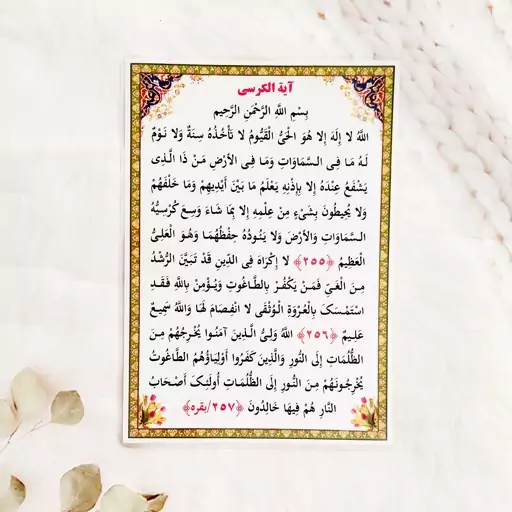 آیة الکرسی
بِسْمِ اللَّهِ الرَّحْمَنِ الرَّحِیمِ
اللَّهُ لا إِلَهَ إِلا هُوَ الْحَیُّ الْقَیُّومُ لا تَأْخُذُهُ سِنَةٌ وَلا نَوْمٌ
لَهُ مَا فِی السَّمَاوَاتِ وَمَا فِی الأرْضِ مَنْ ذَا الَّذِی
یَشْفَعُ عِنْدَهُ إِلا بِإِذْنِهِ یَعْلَمُ مَا بَیْنَ أَیْدِیهِمْ وَمَا خَلْفَهُمْ
وَلا یُحِیطُونَ بِشَیْءٍ مِنْ عِلْمِهِ إِلا بِمَا شَاءَ وَسِعَ کُرْسِیُّهُ
السَّمَاوَاتِ وَالأرْضَ وَلا یَئُودُهُ حِفْظُهُمَا وَهُوَ الْعَلِیُّ
الْعَظِیمُ ﴿۲۵۵﴾ لا إِکْرَاهَ فِی الدِّینِ قَدْ تَبَیَّنَ الرُّشْدُ
مِنَ الْغَیِّ فَمَنْ یَکْفُرْ بِالطَّاغُوتِ وَیُؤْمِنْ بِاللَّهِ فَقَدِ
اسْتَمْسَکَ بِالْعُرْوَةِ الْوُثْقَی لا انْفِصَامَ لَهَا وَاللَّهُ سَمِیعٌ
عَلِیمٌ ﴿۲۵۶﴾ اللَّهُ وَلِیُّ الَّذِینَ آمَنُوا یُخْرِجُهُمْ مِنَ
الظُّلُمَاتِ إِلَی النُّورِ وَالَّذِینَ کَفَرُوا أَوْلِیَاؤُهُمُ الطَّاغُوتُ
یُخْرِجُونَهُمْ مِنَ النُّورِ إِلَی الظُّلُمَاتِ أُولَئِکَ أَصْحَابُ
النَّارِ هُمْ فِیهَا خَالِدُونَ ﴿۲۵۷/بقره﴾